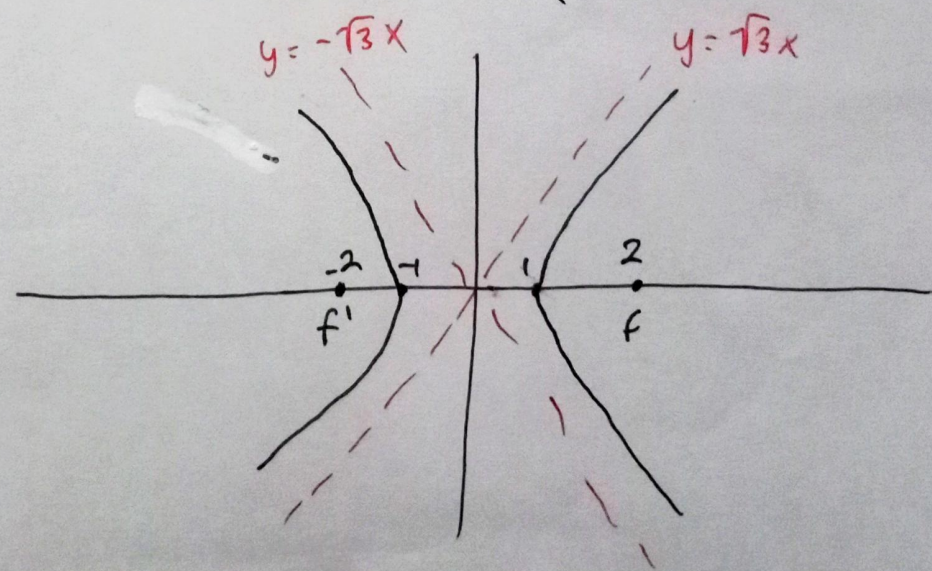 y = -√3 x
y = √3 x
-2
-1
1
2
f'
f